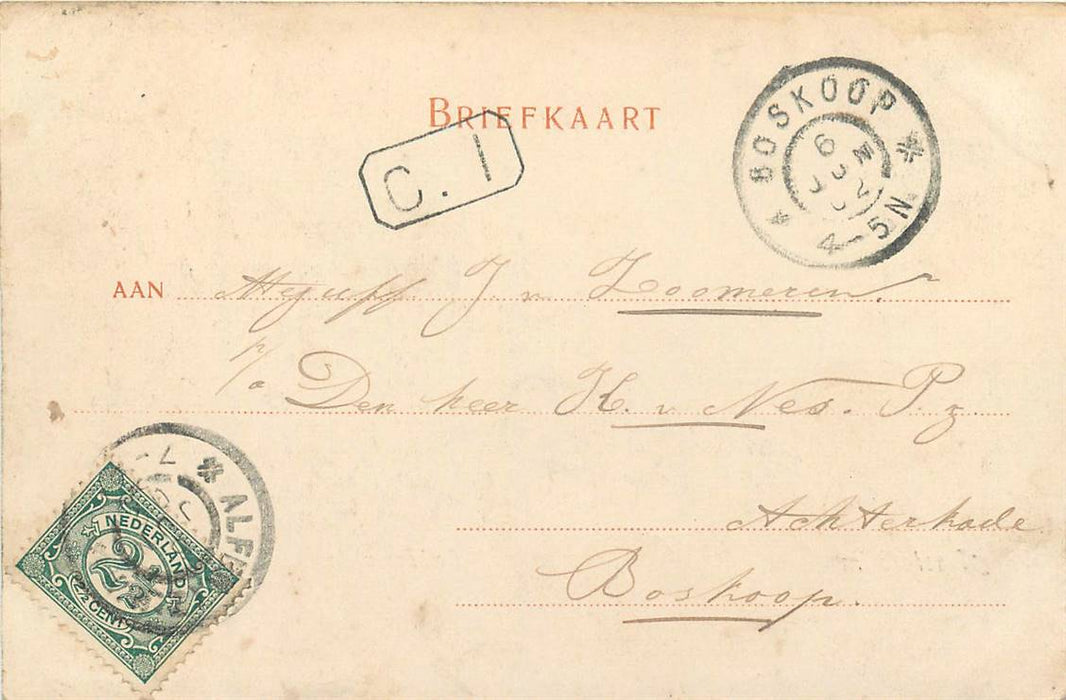 BRIEFKAART
C. 1
BOSKOOP
4-5N
AAN Mejuff J. v Zoomeren
p/a Den heer H. v Nes. Pz
Achterkade
Boskoop.
ALF
NEDERLAND
2½
2½ CENT